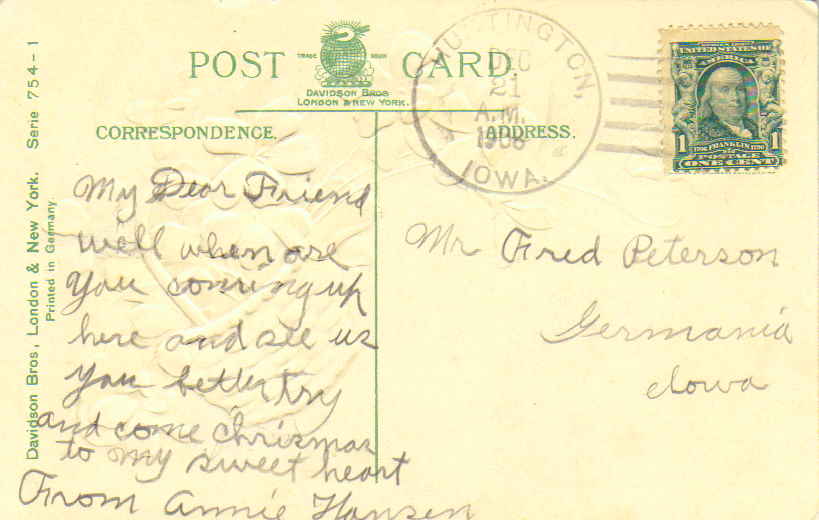 POST CARD.
TRADE MARK
DAVIDSON BROS
LONDON & NEW YORK.
HUNTINGTON,
DEC
21
A.M.
1908
IOWA.
UNITED STATES OF
AMERICA
1 1
1706 FRANKLIN 1790
POSTAGE
ONE CENT
CORRESPONDENCE.
ADDRESS.
Davidson Bros, London & New York. Serie 754-1
Printed in Germany.
My Dear Friend
well when are
you comring up
here and see us
you better try
and come chrismas
to my sweet heart
From Annie Hansen
Mr Fred Peterson
Germania
Iowa